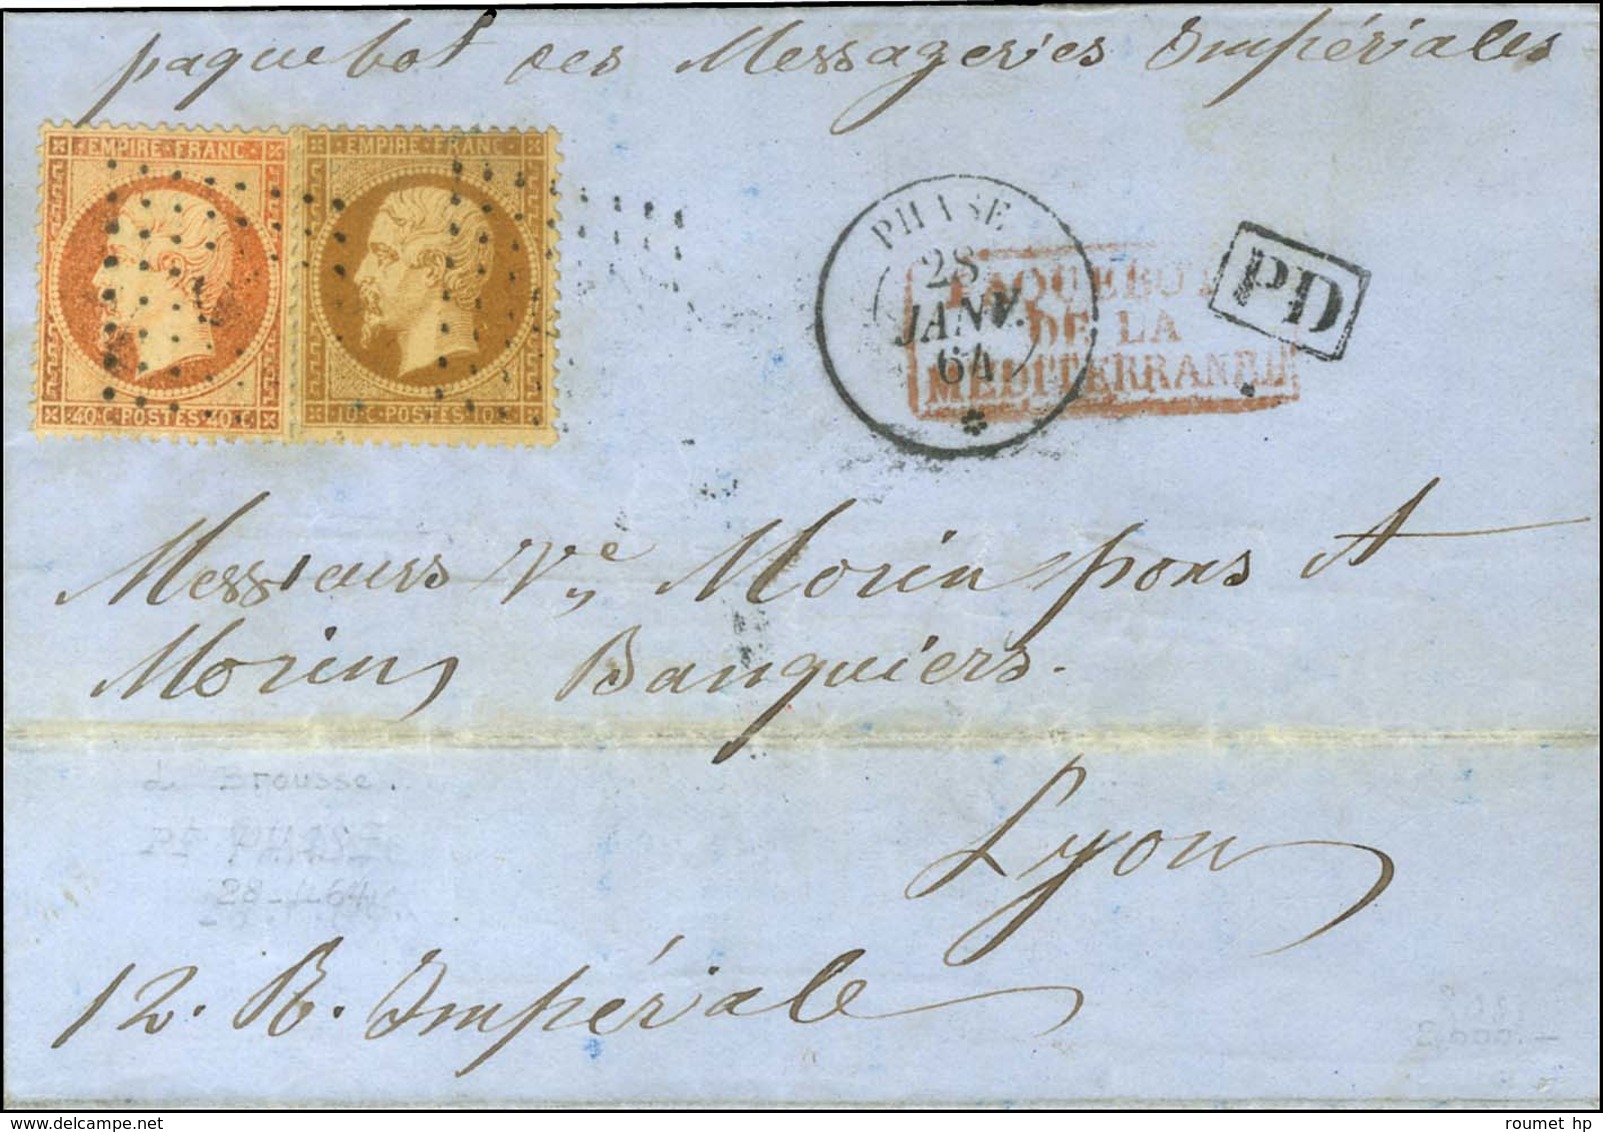 paquebot des Messageries Impériales
EMPIRE FRANC
40.C POSTES 40.C
EMPIRE FRANC
10.C POSTES 10.C
PHASE
28
JANV.
64
PAQUEBOT
DE LA
MEDITERRANEE
PD
Messieurs Vve Morin pons &
Morin, Banquiers.
Lyon
de Brousse.
Pt PHASE
28-1-64
12. R. Impériale
2.000.-
roumet hp